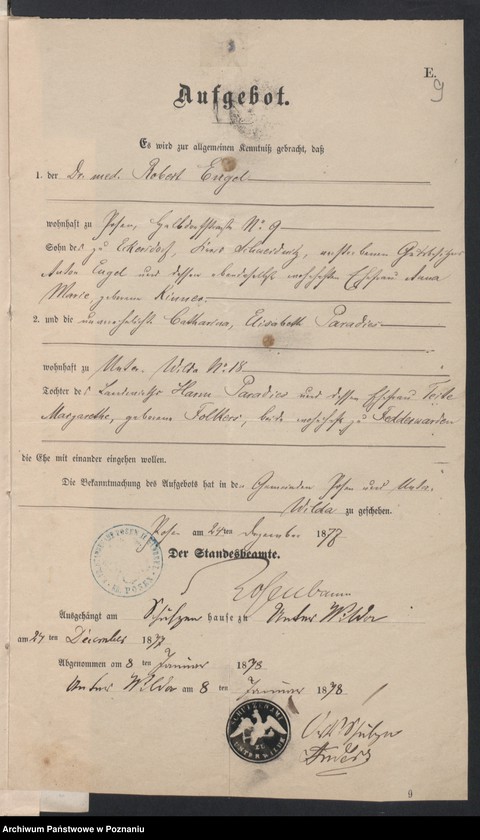 E.
9
Aufgebot.
Es wird zur allgemeinen Kenntniß gebracht, daß
1. der Dr. med. Robert Engel
wohnhaft zu Posen, Halbdorfstraße No 9
Sohn des zu Eckersdorf, Kreis, verstorbenen Gutsbesitzers
Anton Engel und dessen Ehefrau Anna
Marie, geborene
2. und die unverehelichte Catharina, Elisabeth Paradies
wohnhaft zu Unter-Wilda No 18
Tochter des Landwirths Harm Paradies und dessen Ehefrau
Margarethe, geborene Folkers, beide wohnhaft zu Fedderwarden
die Ehe mit einander eingehen wollen.
Die Bekanntmachung des Aufgebots hat in den Gemeinden Posen und Unter-
Wilda zu geschehen.
Posen am 24ten Dezember 1877
Der Standesbeamte.
Ausgehängt am Schulzenhause zu Unter Wilda
am 27 ten December 1877
Abgenommen am 8 ten Januar 1878
Unter Wilda am 8 ten Januar 1878
POSEN
SCHULZENAMT
ZU
UNTER WILDA
9
Archiwum Państwowe w Poznaniu